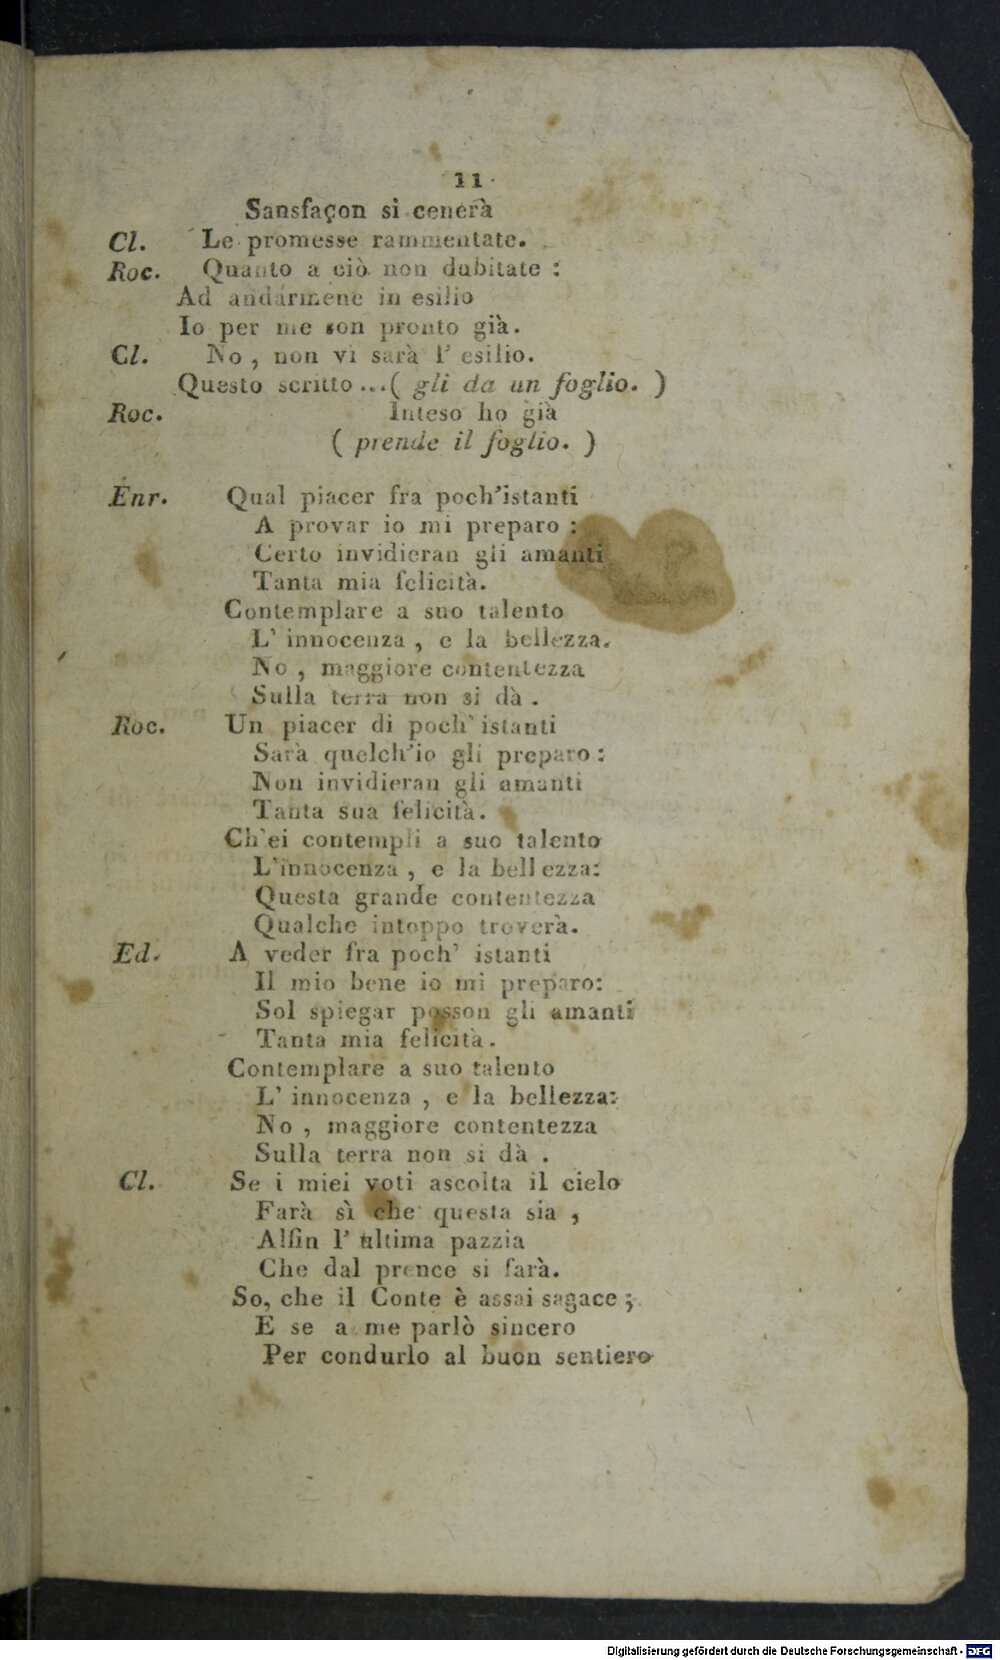 11
Sansfaçon si cenerà
Cl. Le promesse rammentate.
Roc. Quanto a ciò non dubitate :
Ad andarmene in esilio
Io per me son pronto già.
Cl. No , non vi sarà l' esilio.
Questo scritto ...( gli da un foglio. )
Roc. Inteso ho già
( prende il foglio. )
Enr. Qual piacer fra poch'istanti
A provar io mi preparo :
Certo invidieran gli amanti
Tanta mia felicità.
Contemplare a suo talento
L' innocenza , e la bellezza.
No , maggiore contentezza
Sulla terra non si dà .
Roc. Un piacer di poch' istanti
Sarà quelch'io gli preparo :
Non invidieran gli amanti
Tanta sua felicità.
Ch'ei contempli a suo talento
L'innocenza , e la bellezza:
Questa grande contentezza
Qualche intoppo troverà.
Ed. A veder fra poch' istanti
Il mio bene io mi preparo:
Sol spiegar posson gli amanti
Tanta mia felicità .
Contemplare a suo talento
L' innocenza , e la bellezza:
No , maggiore contentezza
Sulla terra non si dà .
Cl. Se i miei voti ascolta il cielo
Farà sì che questa sia ,
Alfin l' ultima pazzia
Che dal prence si farà.
So, che il Conte è assai sagace ;
E se a me parlò sincero
Per condurlo al buon sentiero
Digitalisierung gefördert durch die Deutsche Forschungsgemeinschaft - DFG